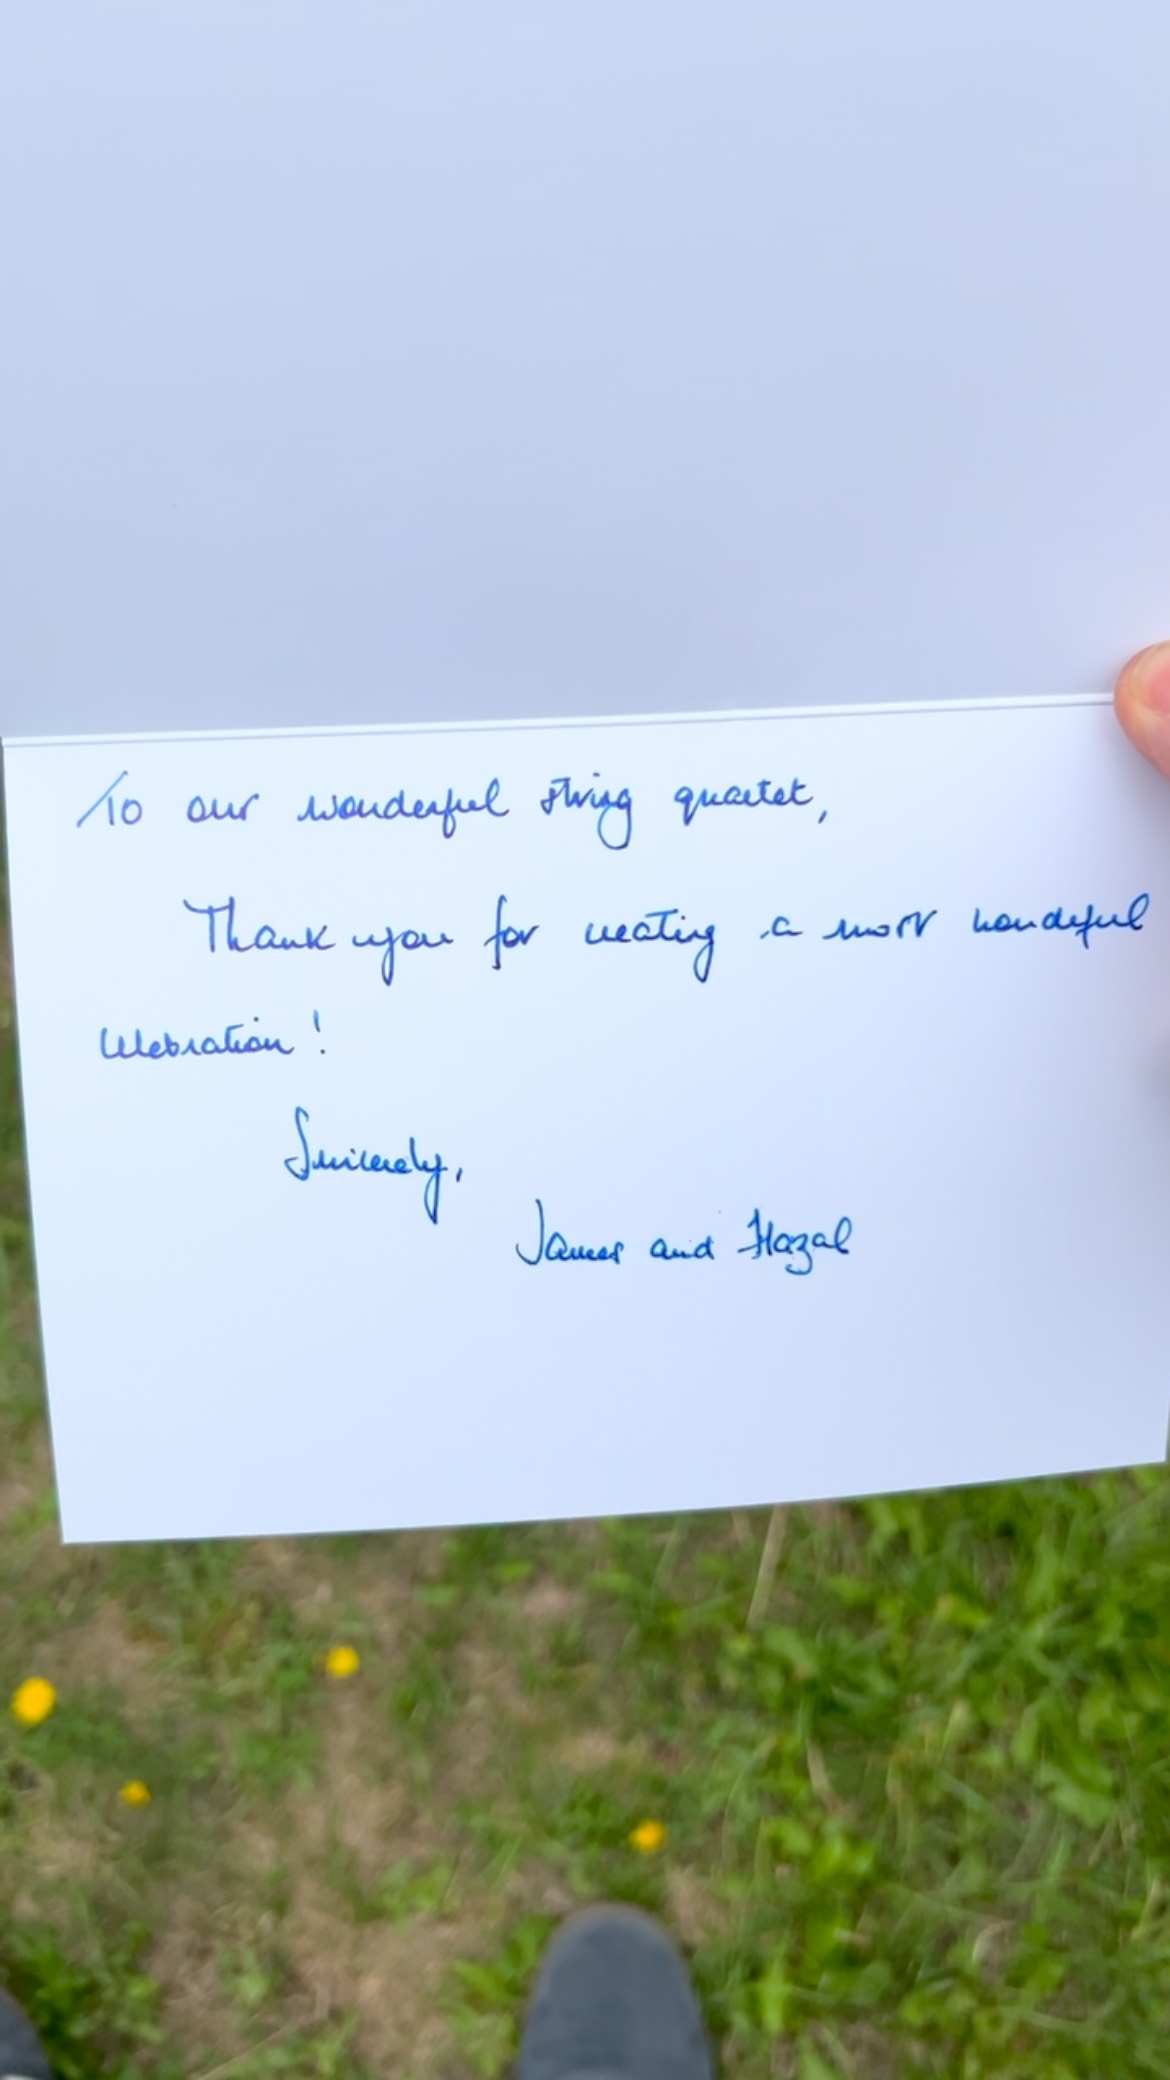 To our wonderful string quartet,
Thank you for creating a most wonderful
celebration!
Sincerely,
James and Hazal